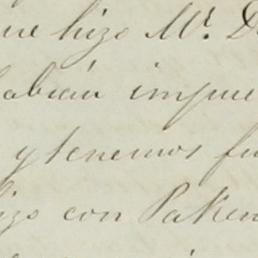 que hizo Mr. D
habian impue
y tenemos fu
hizo con Paken